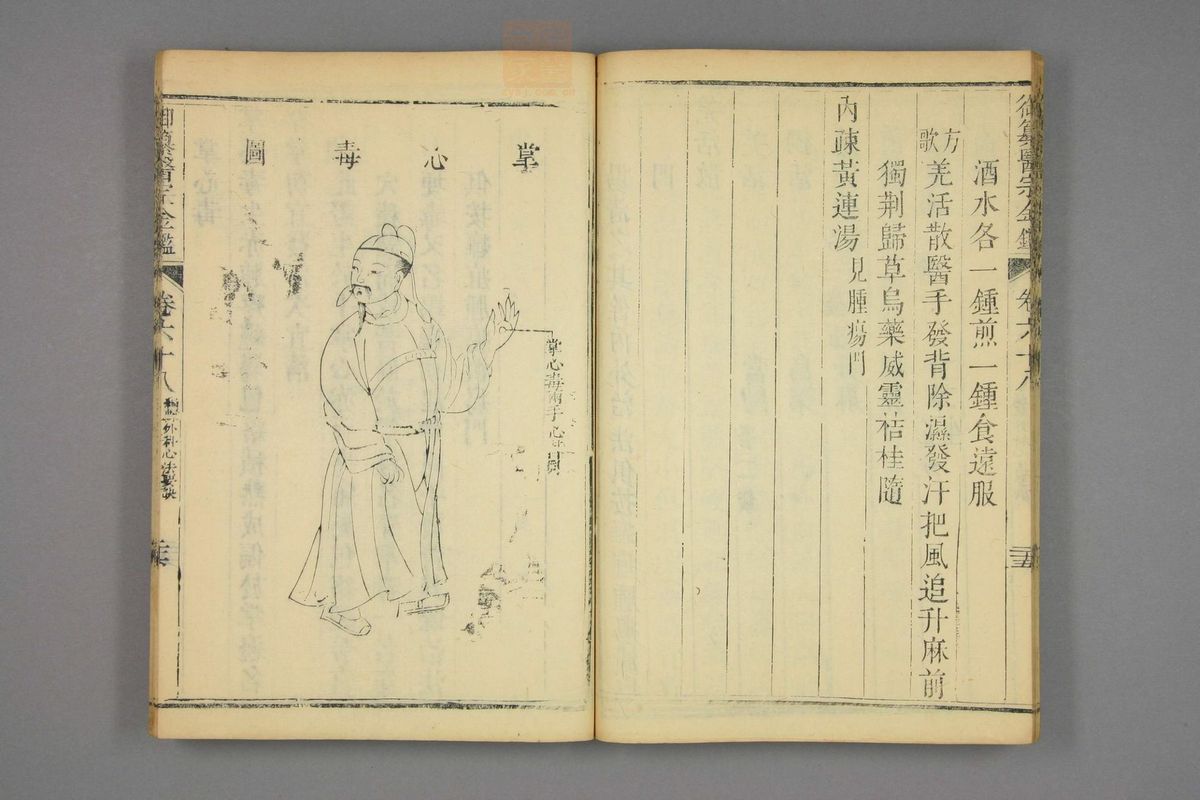 酒水各一鍾煎一鍾食遠服
方歌 羌活散醫手發背除濕發汗把風追升麻前
獨荆歸草烏藥威靈桔桂隨
內疎黃連湯 見腫瘍門
御纂醫宗金鑑 卷六十八
掌心毒圖
掌心毒兩手心
御纂醫宗金鑑 卷六十八 外科心法要訣